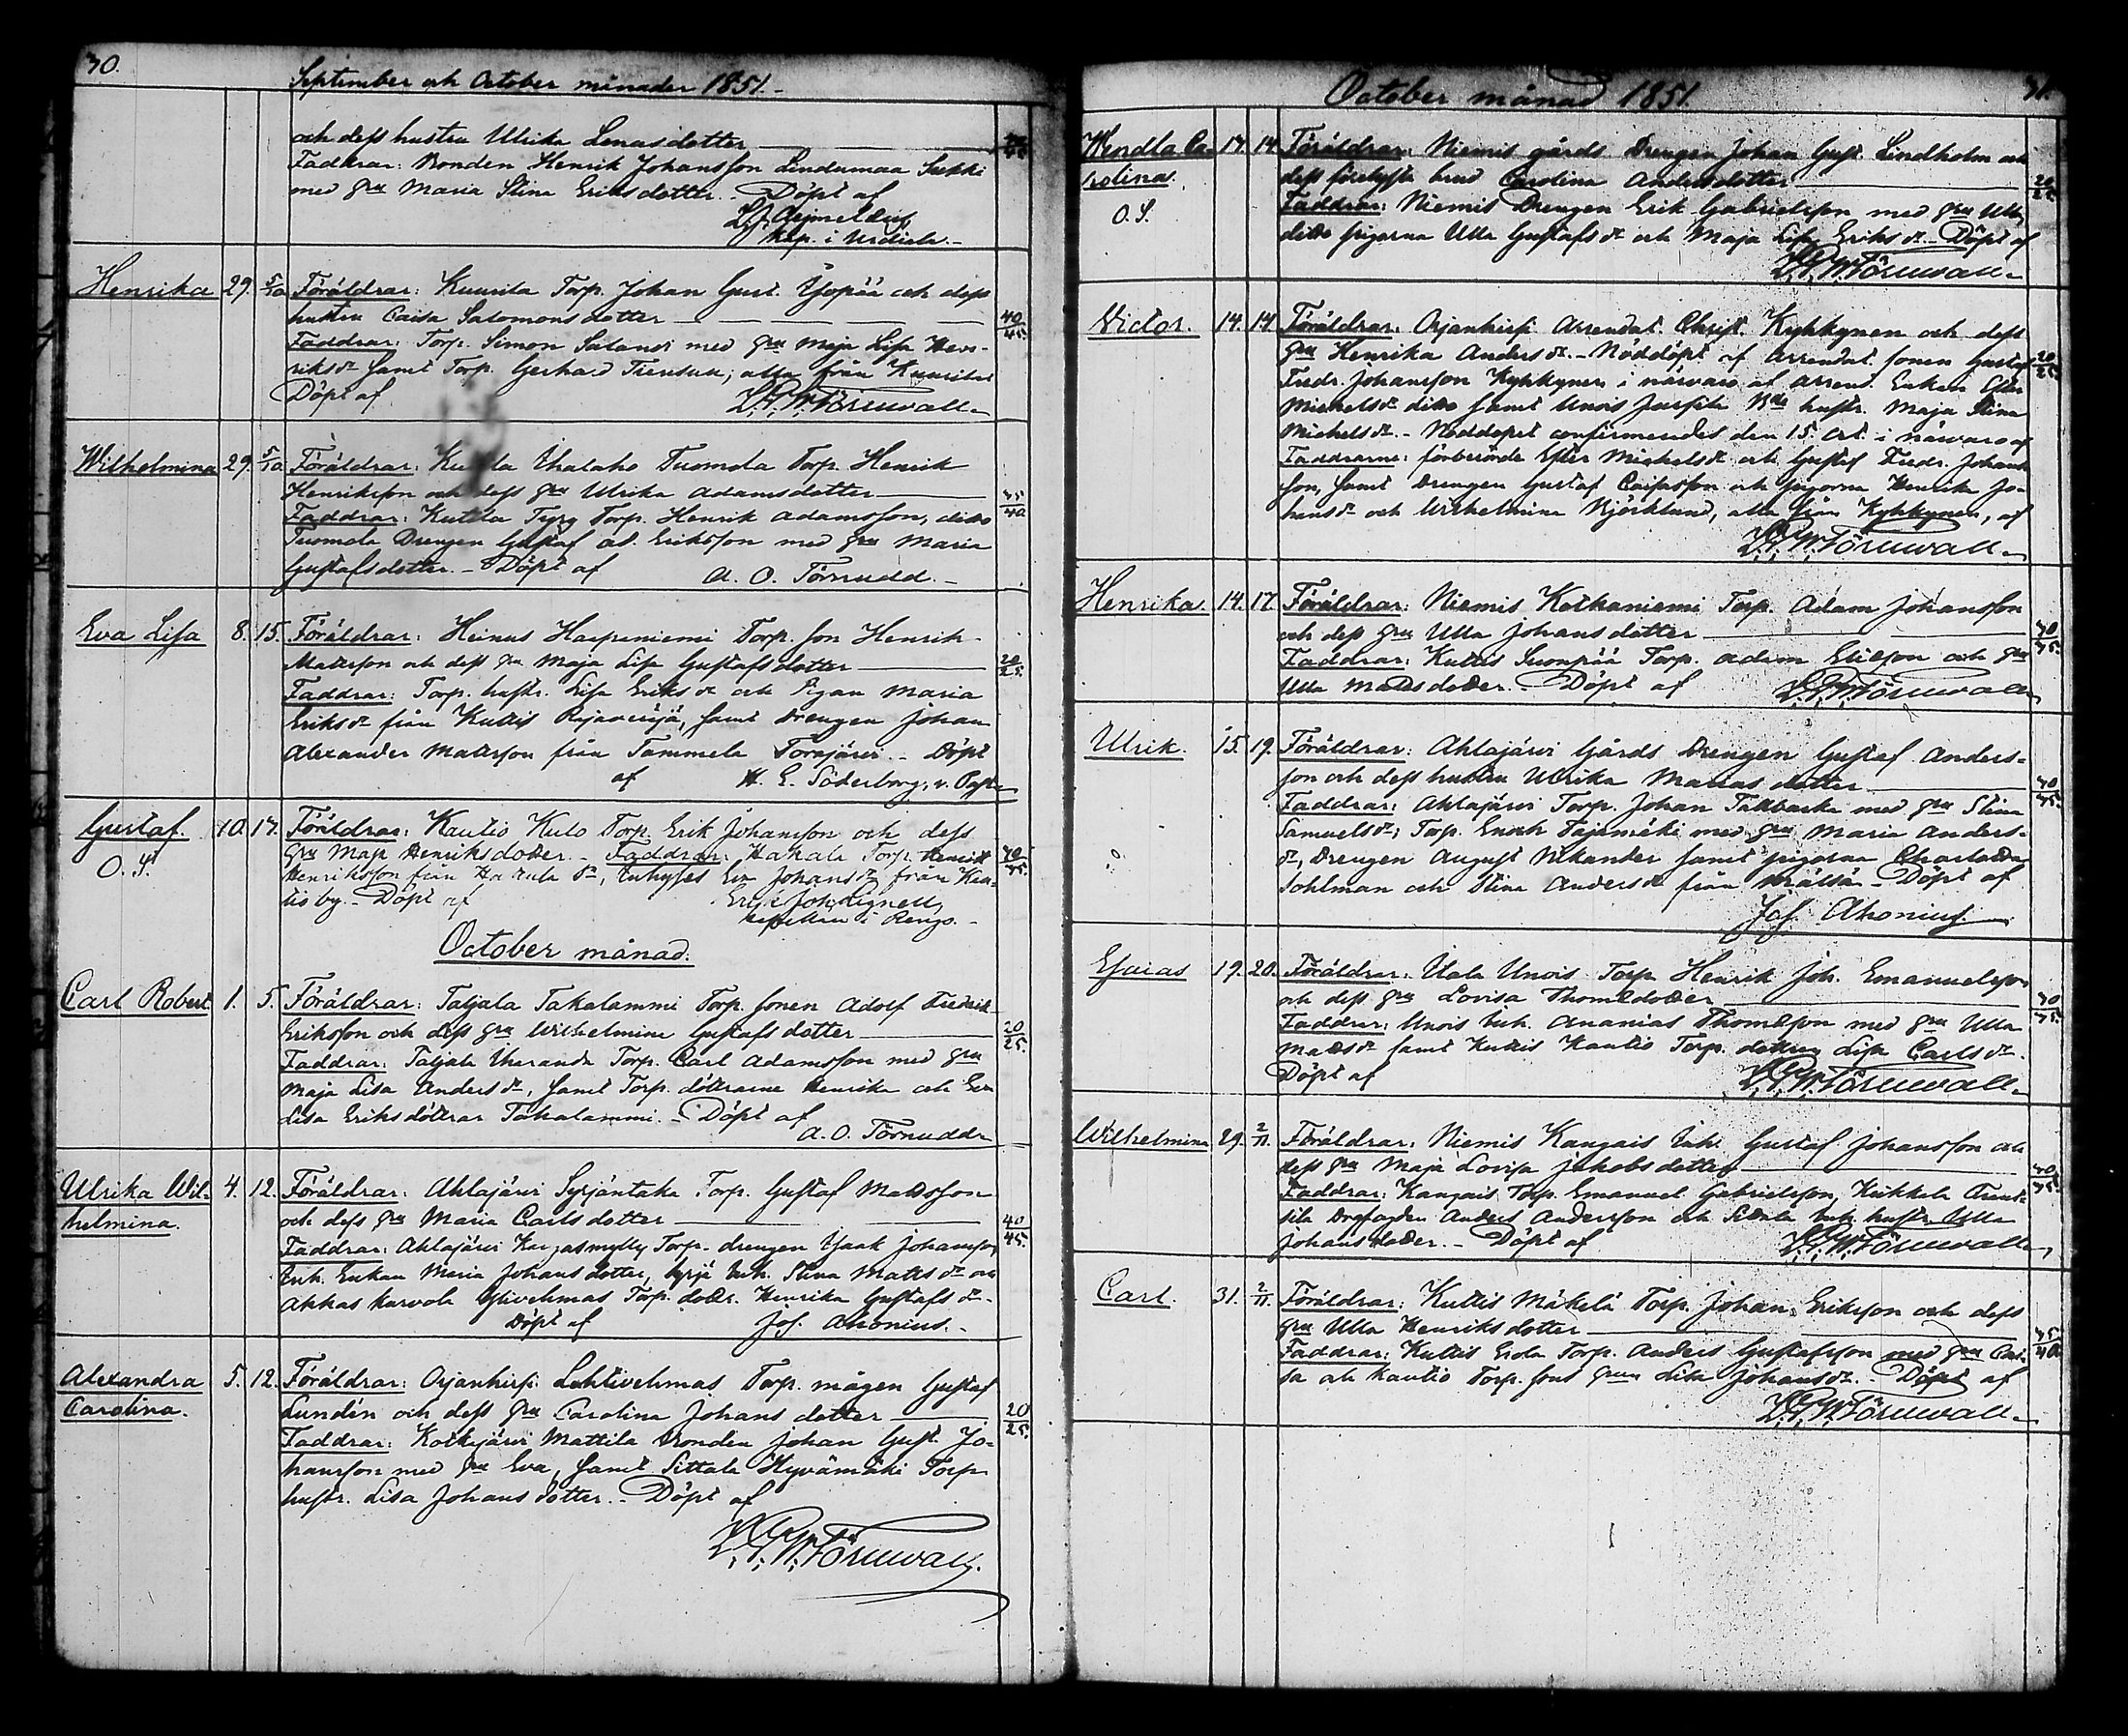 30.
September och October månader 1851.-
och dess hustru Ulrika Lenasdotter
Faddrar: Bonden Henrik Johansson Lindumaa Sukki
med hru Maria Stina Eriksdotter. - Döpt af
Kap. i Urdiala.-
Henrika 29. 5/10 Föräldrar: Kuurila Torp. Johan Gust. Yjopää och dess
hustru Caisa Salomonsdotter 40/45.
Faddrar: Torp. Simon Salandr med hru Maja Lisa Hen-
riksdr samt Torp. Gerhard Tiensuu; alla från Kuurila
Döpt af L.G.W. Törnwall.
Wilhelmina 29. 5/10 Föräldrar: Kutila Uhalaho Tuomola Torp. Henrik
Henriksson och dess hru Ulrika Adamsdotter 35/40
Faddrar: Kutila Tyrg Torp. Henrik Adamsson, dito
Tuomola Drengen Gustaf Ad. Eriksson med hru Maria
Gustafsdotter. - Döpt af A. O. Törnudd.-
Eva Lisa 8. 15. Föräldrar: Heinus Haapaniemi Torp. son Henrik
Matsson och dess hru Maja Lisa Gustafsdotter 20/25.
Faddrar: Torp. hustr. Lisa Eriksdr och Pigan Maria
Eriksdr från Kuttis Rajaveräjä, samt Drengen Johan
Alexander Matsson från Tammela Torajärvi. - Döpt
af H. E. Söderborg, v. Past.
Gustaf. 10. 17. Föräldrar: Kautio Kulo Torp. Erik Johansson och dess
O. S. hru Maja Henriksdotter. - Faddrar: Hakala Torp. Henrik 40/45.
Henriksson från Hakala, Inhyses Eva Johansdr från Kau-
tio by. - Döpt af Erik Joh. Lignell,
kapellan i Rengo.-
October månad.
Carl Robert 1. 5. Föräldrar: Taljala Takalammi Torp. sonen Adolf Fredrik
Eriksson och dess hru Wilhelmina Gustafsdotter 20/25.
Faddrar: Taljala Uharanda Torp. Carl Adamsson med hru
Maja Lisa Andersdr, samt Torp. döttrarne Henrika och Eva
Lisa Eriksdöttrar Takalammi. - Döpt af
A. O. Törnudd
Ulrika Wil- 4. 12. Föräldrar: Ahlajärvi Syrjäntaka Torp. Gustaf Matsson
helmina. och dess hru Maria Carlsdotter 40/45.
Faddrar: Ahlajärvi Kangasmylly Torp. drengen Isaak Johansson
Inh. Enkan Maria Johansdotter, Syrjä Inh. Stina Mattsdr och
Akkaskarvola Torp. dottr. Henrika Gustafsdr.
Döpt af Jos. Ahonius.-
Alexandra 5. 12. Föräldrar: Orjanhirsi Lehtivehmas Torp. mågen Gustaf
Carolina. Lundén och dess hru Carolina Johansdotter 20/25.
Faddrar: Kotkajärvi Mattila Bonden Johan Gust. Jo-
hansson med hru Eva, samt Sittala Hyvämäki Torp.
hustr. Lisa Johansdotter. - Döpt af
L.G.W. Törnwall.
October månad 1851. 31.
Wendla Ca- 14. 14. Föräldrar: Niemis gårds Drengen Johan Gust. Lindholm och
rolina. dess förelofta brud Carolina Andersdotter 20/25
O. S. Faddrar: Niemis Drengen Erik Gabrielsson med hru Ulla,
dito pigorna Ulla Gustafsdr och Maja Lisa Eriksdr - Döpt af
L.G.W. Törnwall.
Victor. 14. 14. Föräldrar: Orjanhirsi Arrendat. Christ. Kyhkynen och dess
hru Henrika Andersdr. - Nöddöpt af Arrendat. sonen Gustaf 20/25
Fredr. Johansson Kyhkynen i närvaro af Arrend. Enkan Ester
Michelsdr dito samt Unois Jussila Bde hustr. Maja Stina
Michelsdr. - Nöddopet confirmerades den 15. Oct. i närvaro af
Faddrarne: förberörde Ester Michelsdr och Gustaf Fredr. Johans-
son, samt Drengen Gustaf Caisasson och pigorna Henrika Jo-
hansdr och Wilhelmina Björklund, alla från Kyhkynen, af
L.G.W. Törnwall.
Henrika. 14. 17. Föräldrar: Niemis Kotkaniemi Torp. Adam Johansson
och dess hru Ulla Johansdotter 30/35.
Faddrar: Kuttis Suonpää Torp. Adam Ericsson och hru
Ulla Mattsdotter. - Döpt af L.G.W. Törnwall
Ulrik. 15. 19. Föräldrar: Ahlajärvi Gårds Drengen Gustaf Anders-
son och dess hustru Ulrika Mariasdotter 30/35.
Faddrar: Ahlajärvi Torp. Johan Tallbacka med hru Stina
Samuelsdr; Torp. Enoch Fajamäki med hru Maria Anders-
dr, Drengen August Nikander samt pigorna Charlotta
Sohlman och Stina Andersdr från - Döpt af
Jos. Ahonius.
Esaias 19. 20. Föräldrar: Utala Unois Torp. Henrik Joh. Emanuelsson
och dess hru Lovisa Thomædotter 30/35.
Faddrar: Unois Inh. Ananias Thomæson med hru Ulla
Mattsdr samt Kuttis Kautio Torp. dottren Lisa Carlsdr.
Döpt af L.G.W. Törnwall.
Wilhelmina 29. 2/11. Föräldrar: Niemis Kangais Inh. Gustaf Johansson och
dess hru Maja Lovisa Jakobsdotter 30/35.
Faddrar: Kangais Torp. Emanuel Gabrielsson, Kukkola
Anders Andersson och Sittala Inh. hustr. Ulla
Johansdotter. - Döpt af L.G.W. Törnwall
Carl. 31. 2/11. Föräldrar: Kuttis Mäkelä Torp. Johan Eriksson och dess
hru Ulla Henriksdotter 35/40
Faddrar: Kuttis Erola Torp. Anders Gustafsson med hru Cai-
sa och Kautio Torp. sons hrun Lisa Johansdr. - Döpt af
L.G.W. Törnwall.